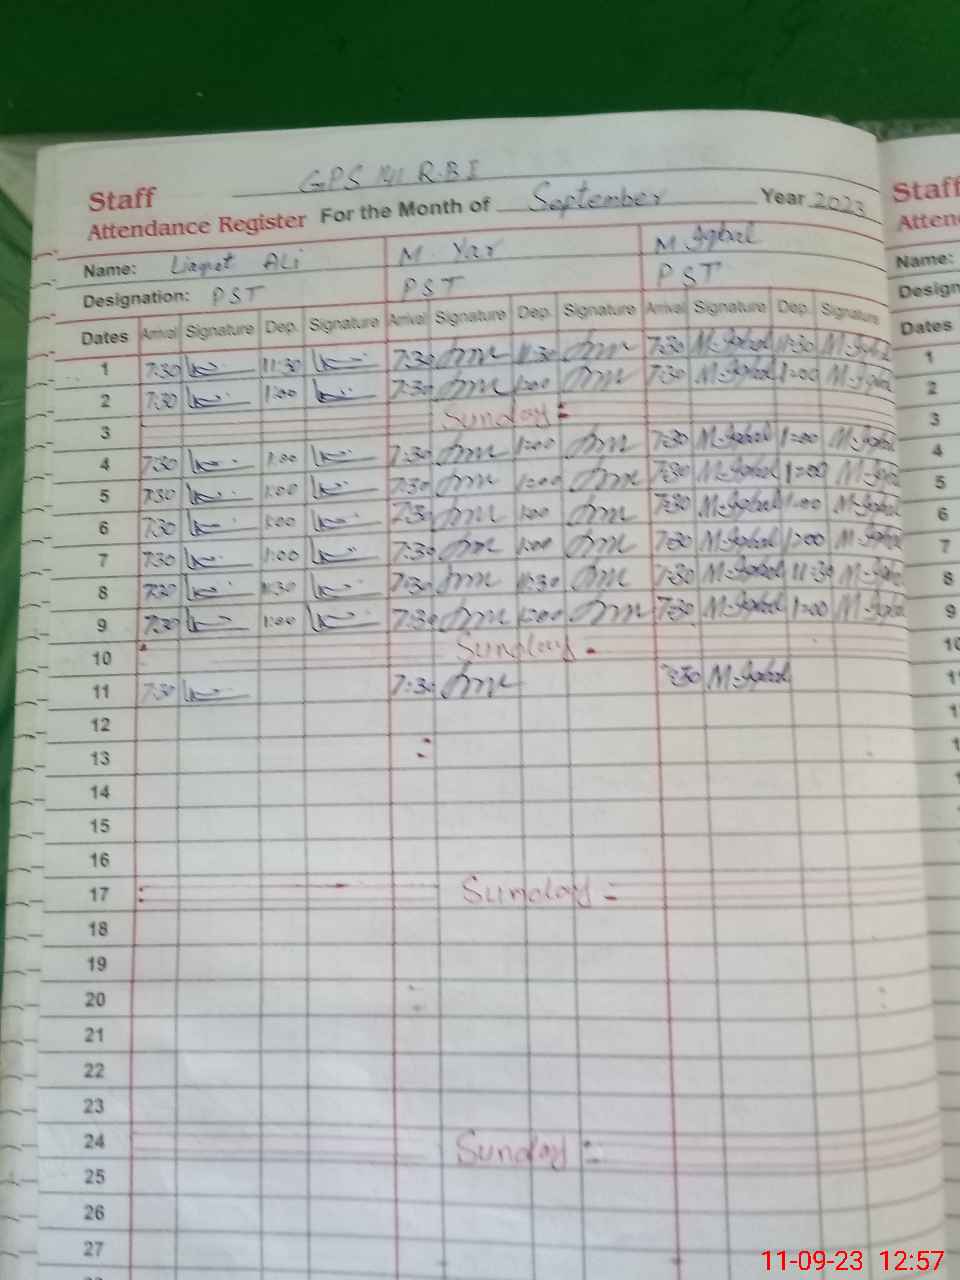 GPS 141 R.B I
Staff
Attendance Register For the Month of September Year 2023
Name: Liaqat Ali M. Yar M. Iqbal
Designation: PST PST PST
Dates Arrival Signature Dep. Signature Arrival Signature Dep. Signature Arrival Signature Dep. Signature
1 7:30 11:30 7:30 11:30 7:30 M.Iqbal 11:30 M.Iqbal
2 7:30 1:00 7:30 1:00 7:30 M.Iqbal 1:00 M.Iqbal
3 Sunday
4 7:30 1:00 7:30 1:00 7:30 M.Iqbal 1:00 M.Iqbal
5 7:30 1:00 7:30 1:00 7:30 M.Iqbal 1:00 M.Iqbal
6 7:30 1:00 7:30 1:00 7:30 M.Iqbal 1:00 M.Iqbal
7 7:30 1:00 7:30 1:00 7:30 M.Iqbal 1:00 M.Iqbal
8 7:30 11:30 7:30 11:30 7:30 M.Iqbal 11:30 M.Iqbal
9 7:30 1:00 7:30 1:00 7:30 M.Iqbal 1:00 M.Iqbal
10 Sunday
11 7:30 7:30 7:30 M.Iqbal
12
13
14
15
16
17 Sunday
18
19
20
21
22
23
24 Sunday
25
26
27
Staff
Atten
Name:
Design
Dates
1
2
3
4
5
6
7
8
9
10
11-09-23 12:57